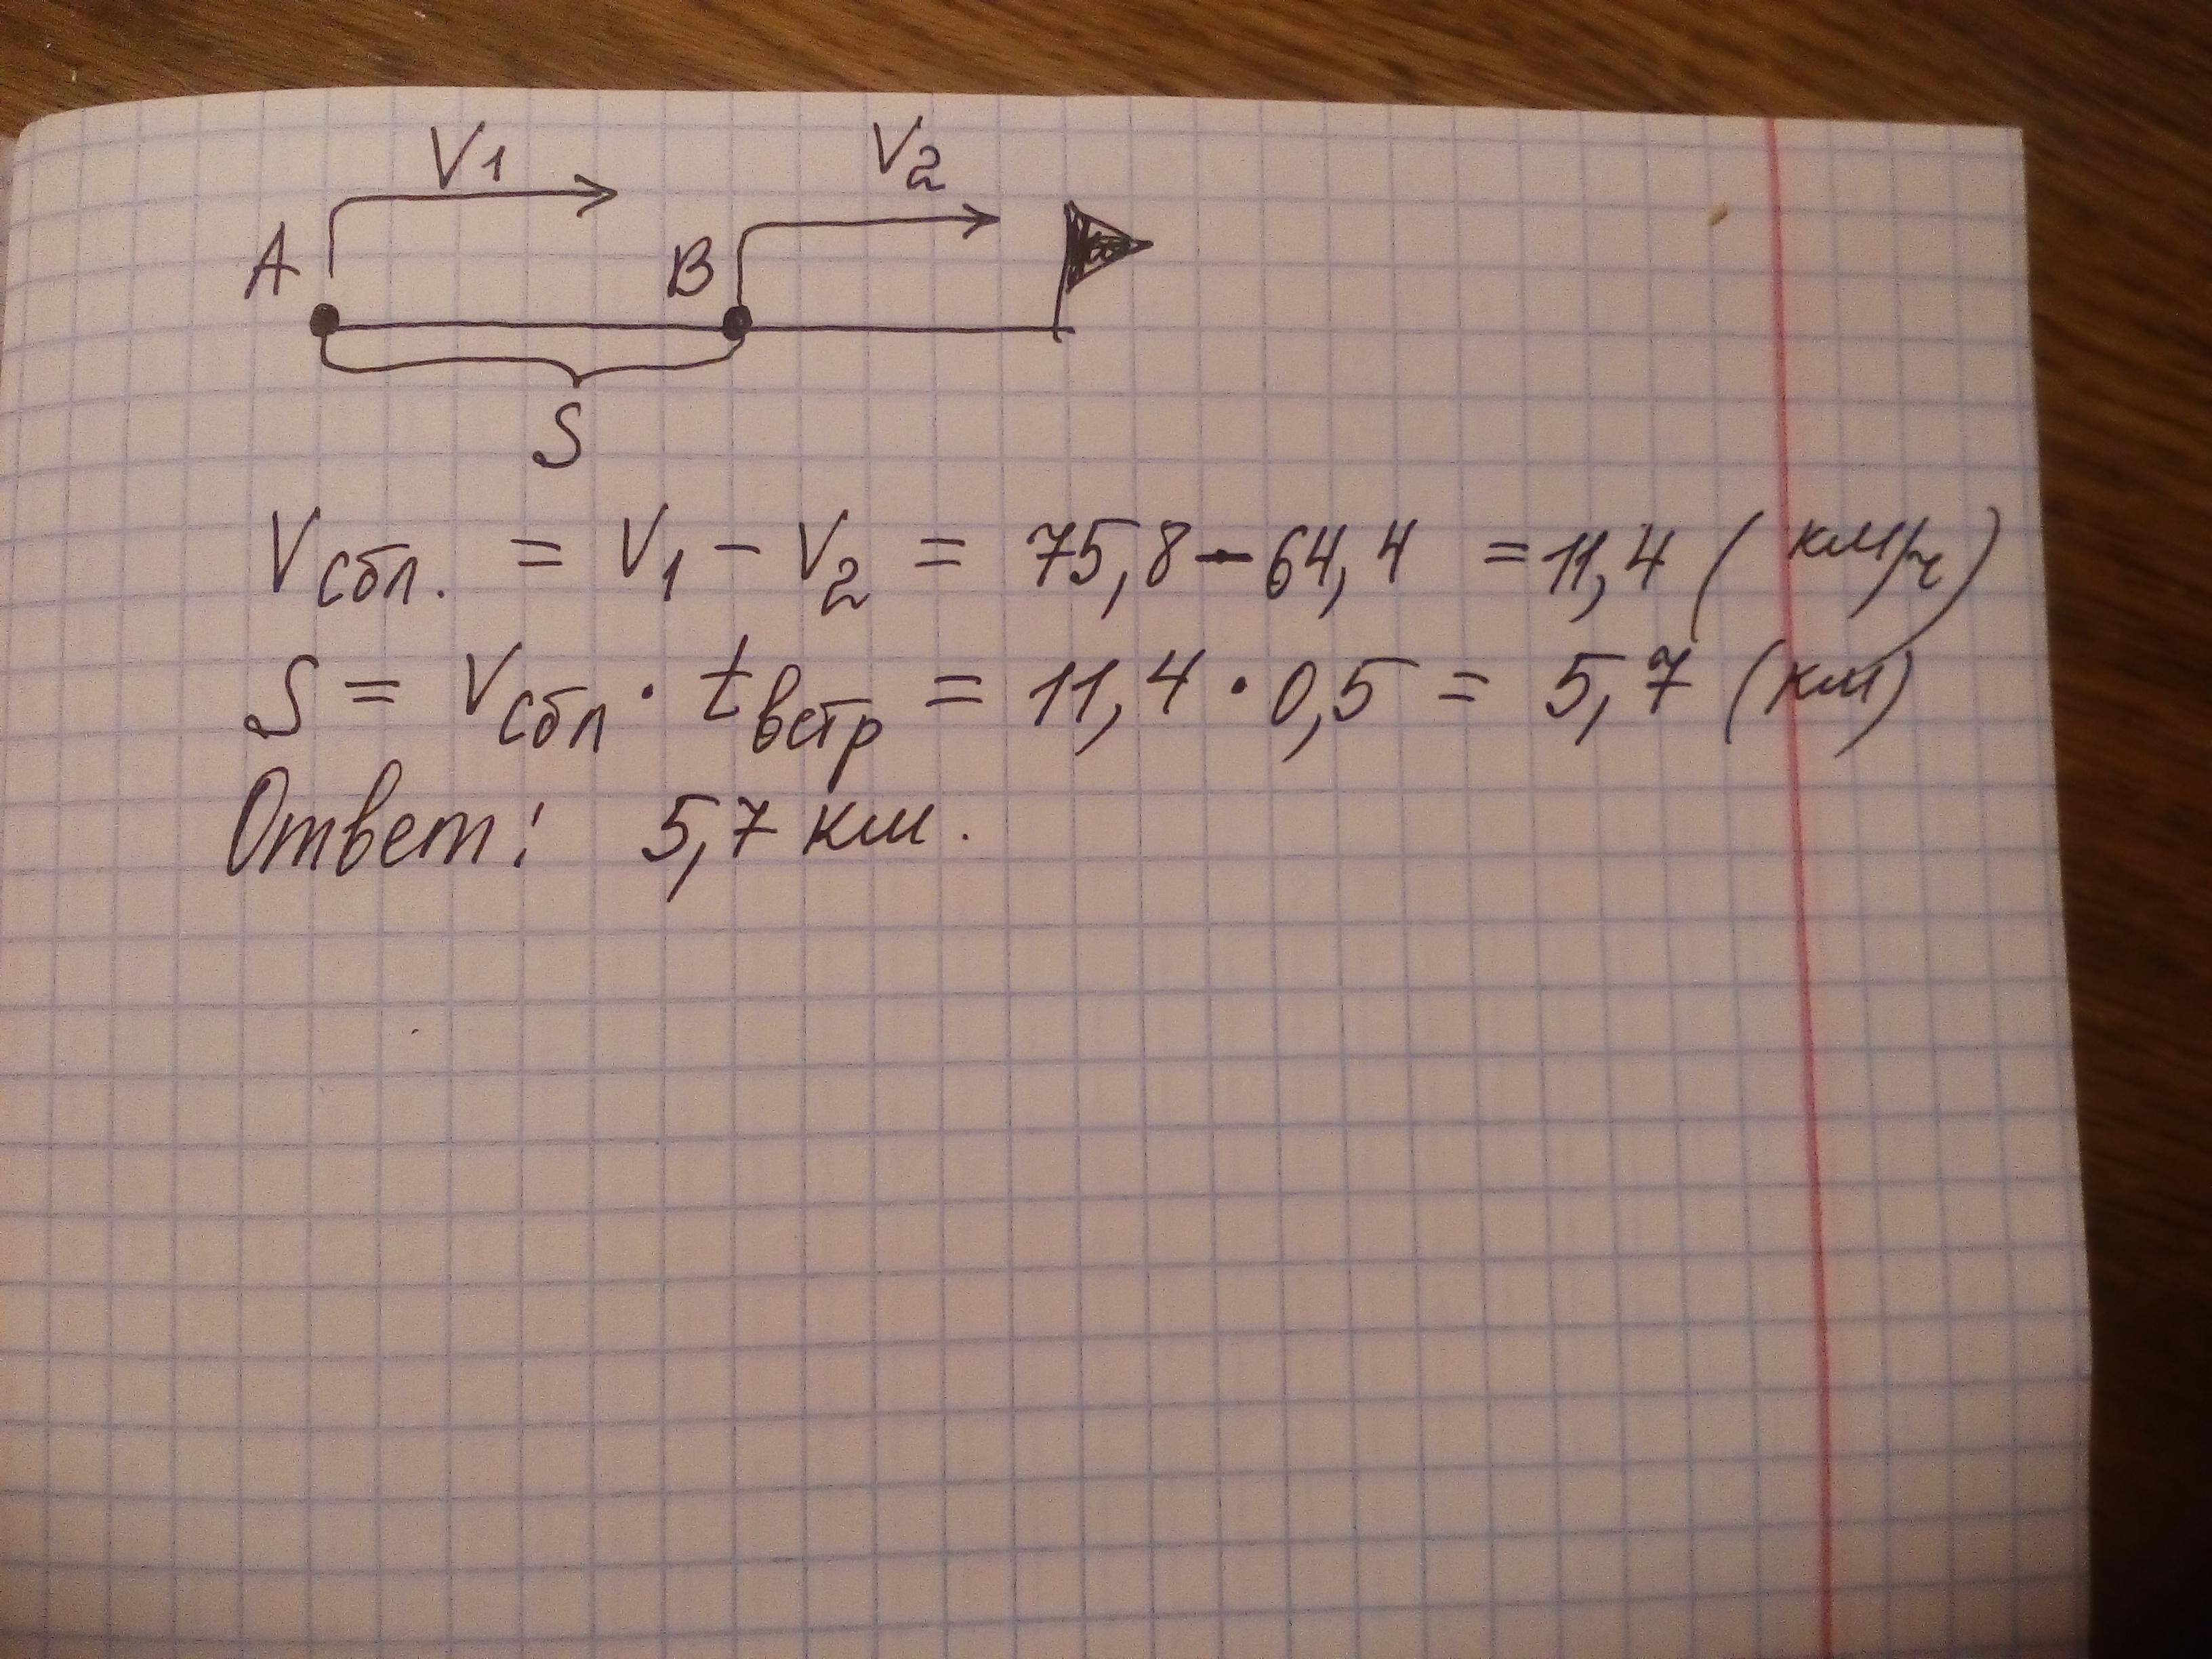 V1 V2
A B
S
Vсбл. = V1 - V2 = 75,8 - 64,4 = 11,4 (км/ч)
S = Vсбл · tвстр = 11,4 · 0,5 = 5,7 (км)
Ответ: 5,7 км.